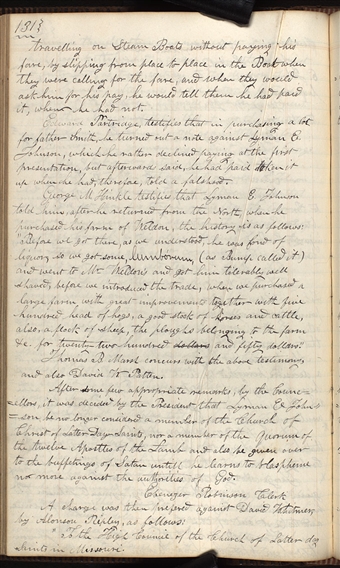 1313
travelling on Steam Boats without paying his
fare, by slipping from place to place in the Boat when
they were calling for the fare, and when they would
ask him for his pay, he would tell them he had paid
it, when he had not.
Edward Partridge, testifies that in purchasing a lot
for father Smith, he turned out a note against Lyman E.
Johnson, which he rather declined paying at the first
presentation, but afterward said, he had paid when it
up when he had, therefore, told a falshood.
George M. Hinkle testifies that Lyman E. Johnson
told him, after he returned from the North, when he
purchased his farm of Weldon, the history is as follows:
"Before we got there, as we understood, he was fond of
liquor, so we got some, (as Bump called it)
and went to Mr. Weldons and got him tolerably well
slived, before we introduced the trade, when we purchased a
large farm with great improvements together with five
hundred head of hogs, a good stock of horses and cattle,
also, a flock of sheep, the ploughs belonging to the farm
&c for twenty two hundred dollars and fifty dollars.
Thomas B. Marsh concurs with the above testimony,
and also David W. Patten.
After some few appropriate remarks, by the Coun-
cellors, it was decided by the President that Lyman E. Johns
=son be no longer considered a member of the Church of
Christ of Latter Day Saints, nor a member of the Quorum of
the twelve Apostles of the Lamb and also be given over
to the buffetings of Satan untill he learns to blaspheme
no more against the authorities of God.
Ebenezer Robinson Clerk
A charge was then prefered against David Whitmer,
by Alonson Ripley, as follows:
"To the High Council of the Church of Latter day
Saints in Missouri.